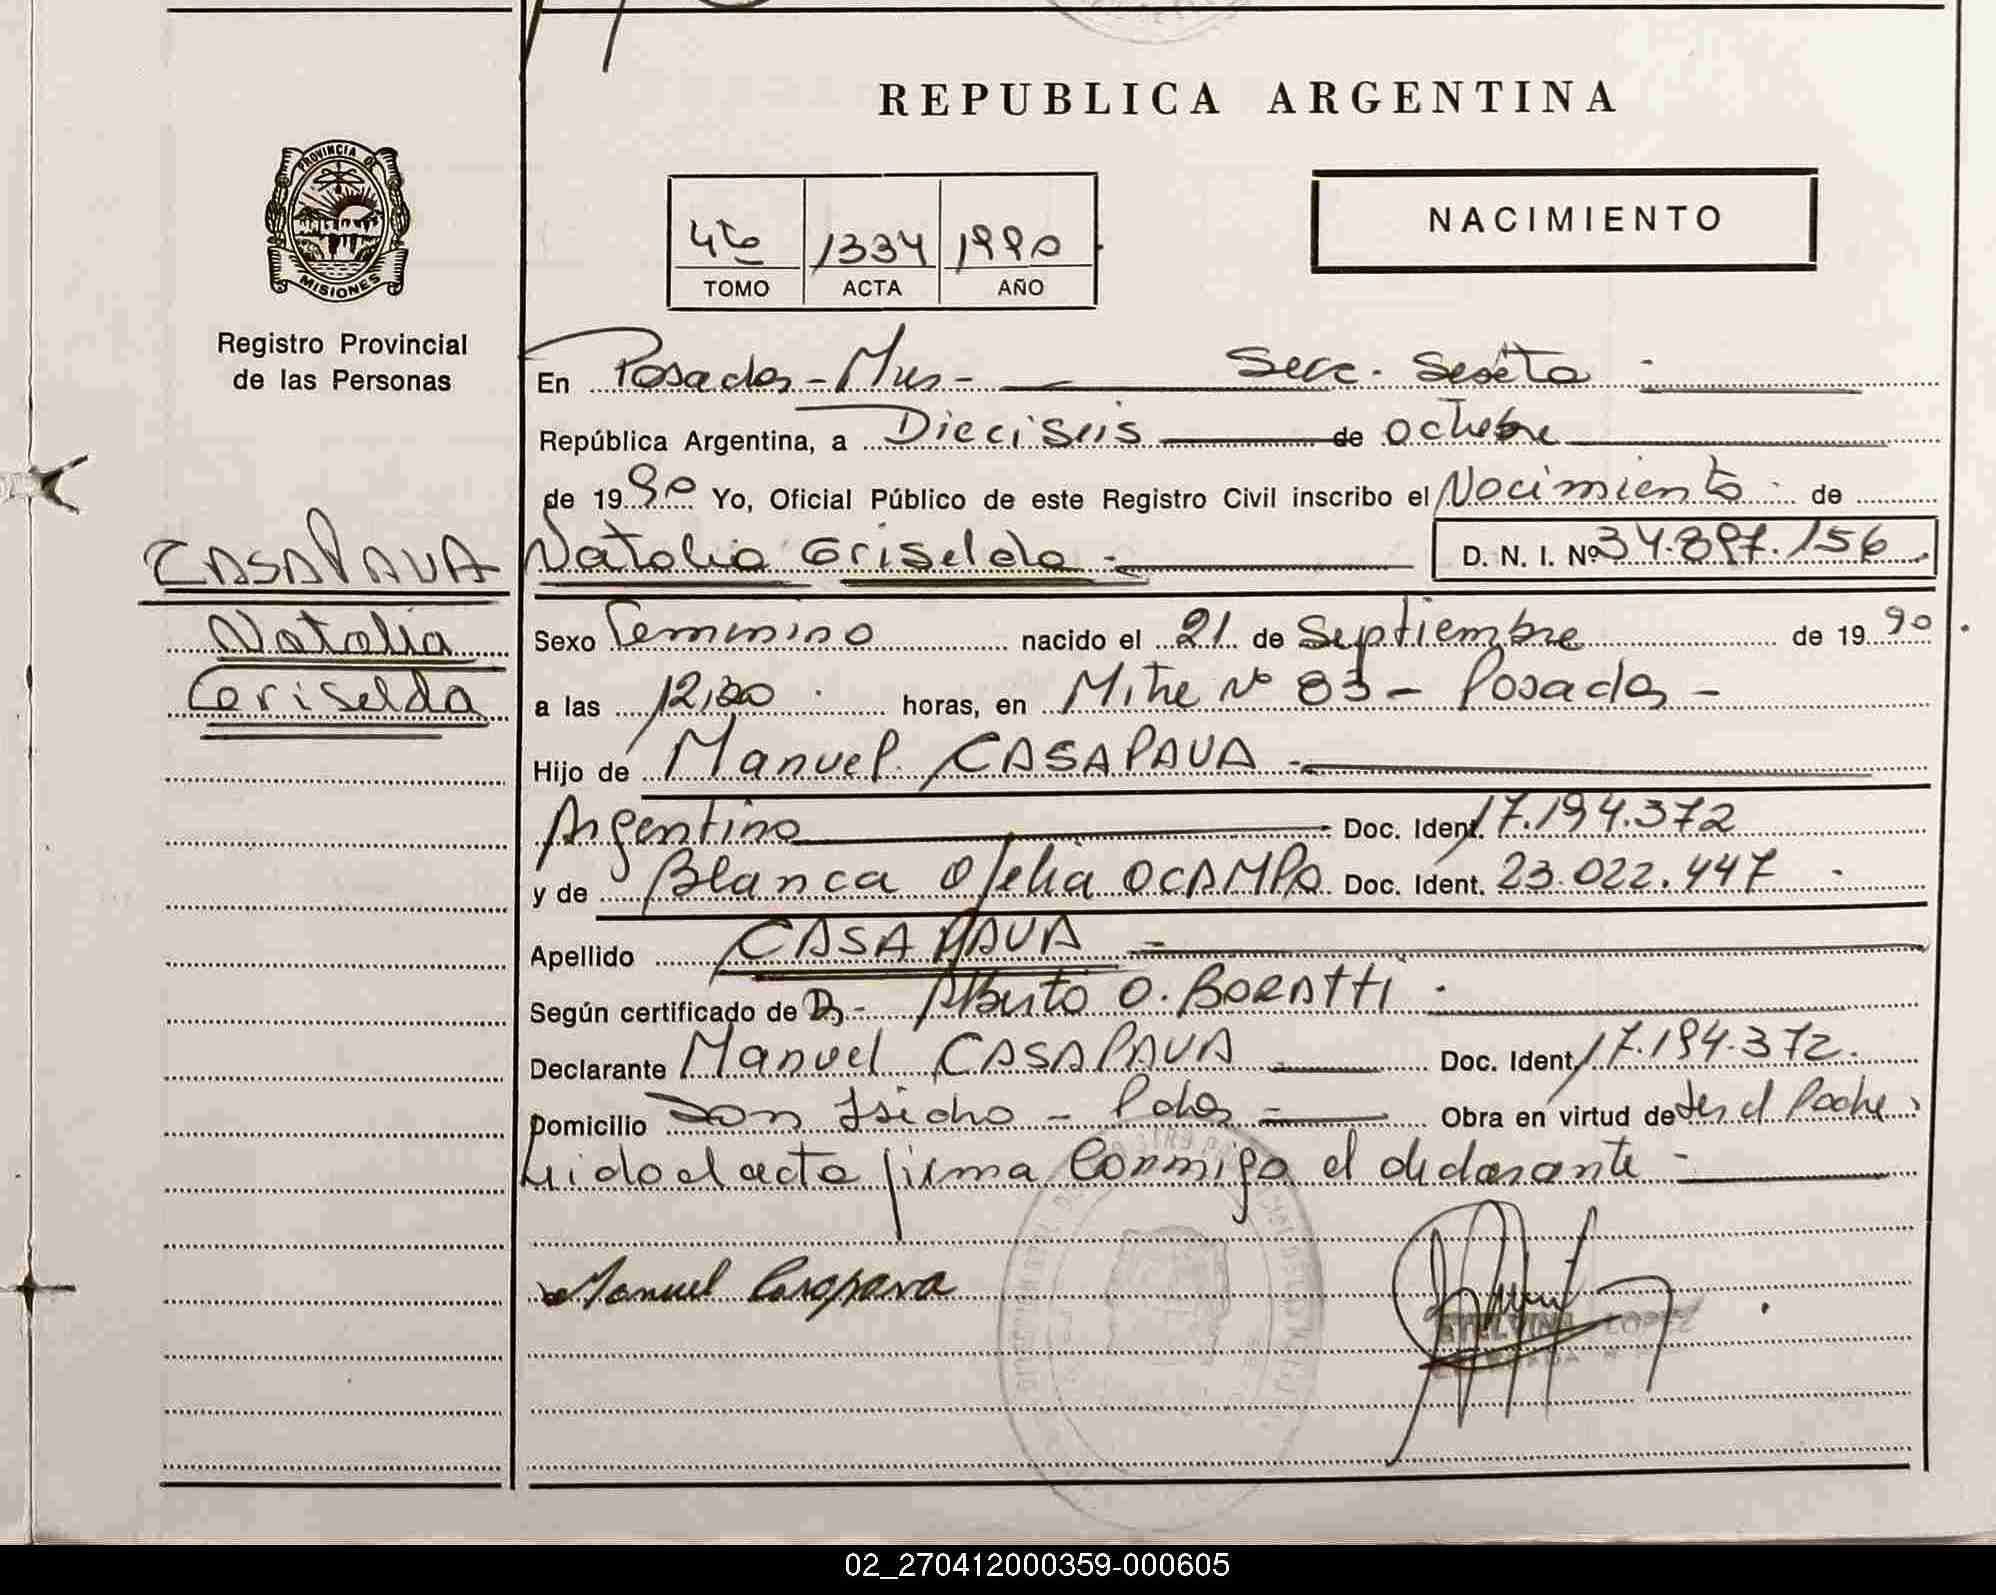 REPUBLICA ARGENTINA
PROVINCIA DE
MISIONES
Registro Provincial
de las Personas
CASAPAVA
Natalia
Griselda
4to 1334 1990
TOMO ACTA AÑO
NACIMIENTO
En Posadas - Mnes - Secc. Sexta
República Argentina, a Dieciseis de octubre
de 1990 Yo, Oficial Público de este Registro Civil inscribo el Nacimiento de
Natalia Griselda - D. N. I. Nº 34.897.156
Sexo Femenino nacido el 21 de Septiembre de 1990
a las horas, en Mitre Nº 83 - Posadas -
Hijo de Manuel CASAPAVA -
Argentino Doc. Ident. 17.194.372
y de Blanca Ofelia OCAMPO Doc. Ident. 23.022.447
Apellido CASAPAVA -
Según certificado de Dr - Alberto O. BORATTI
Declarante Manuel CASAPAVA Doc. Ident. 17.194.372.
Domicilio San Isidro - Pdas - Obra en virtud de ser el Padre,
Leido el acta firma conmigo el declarante -
Manuel Casapava
LOPEZ
02_270412000359-000605